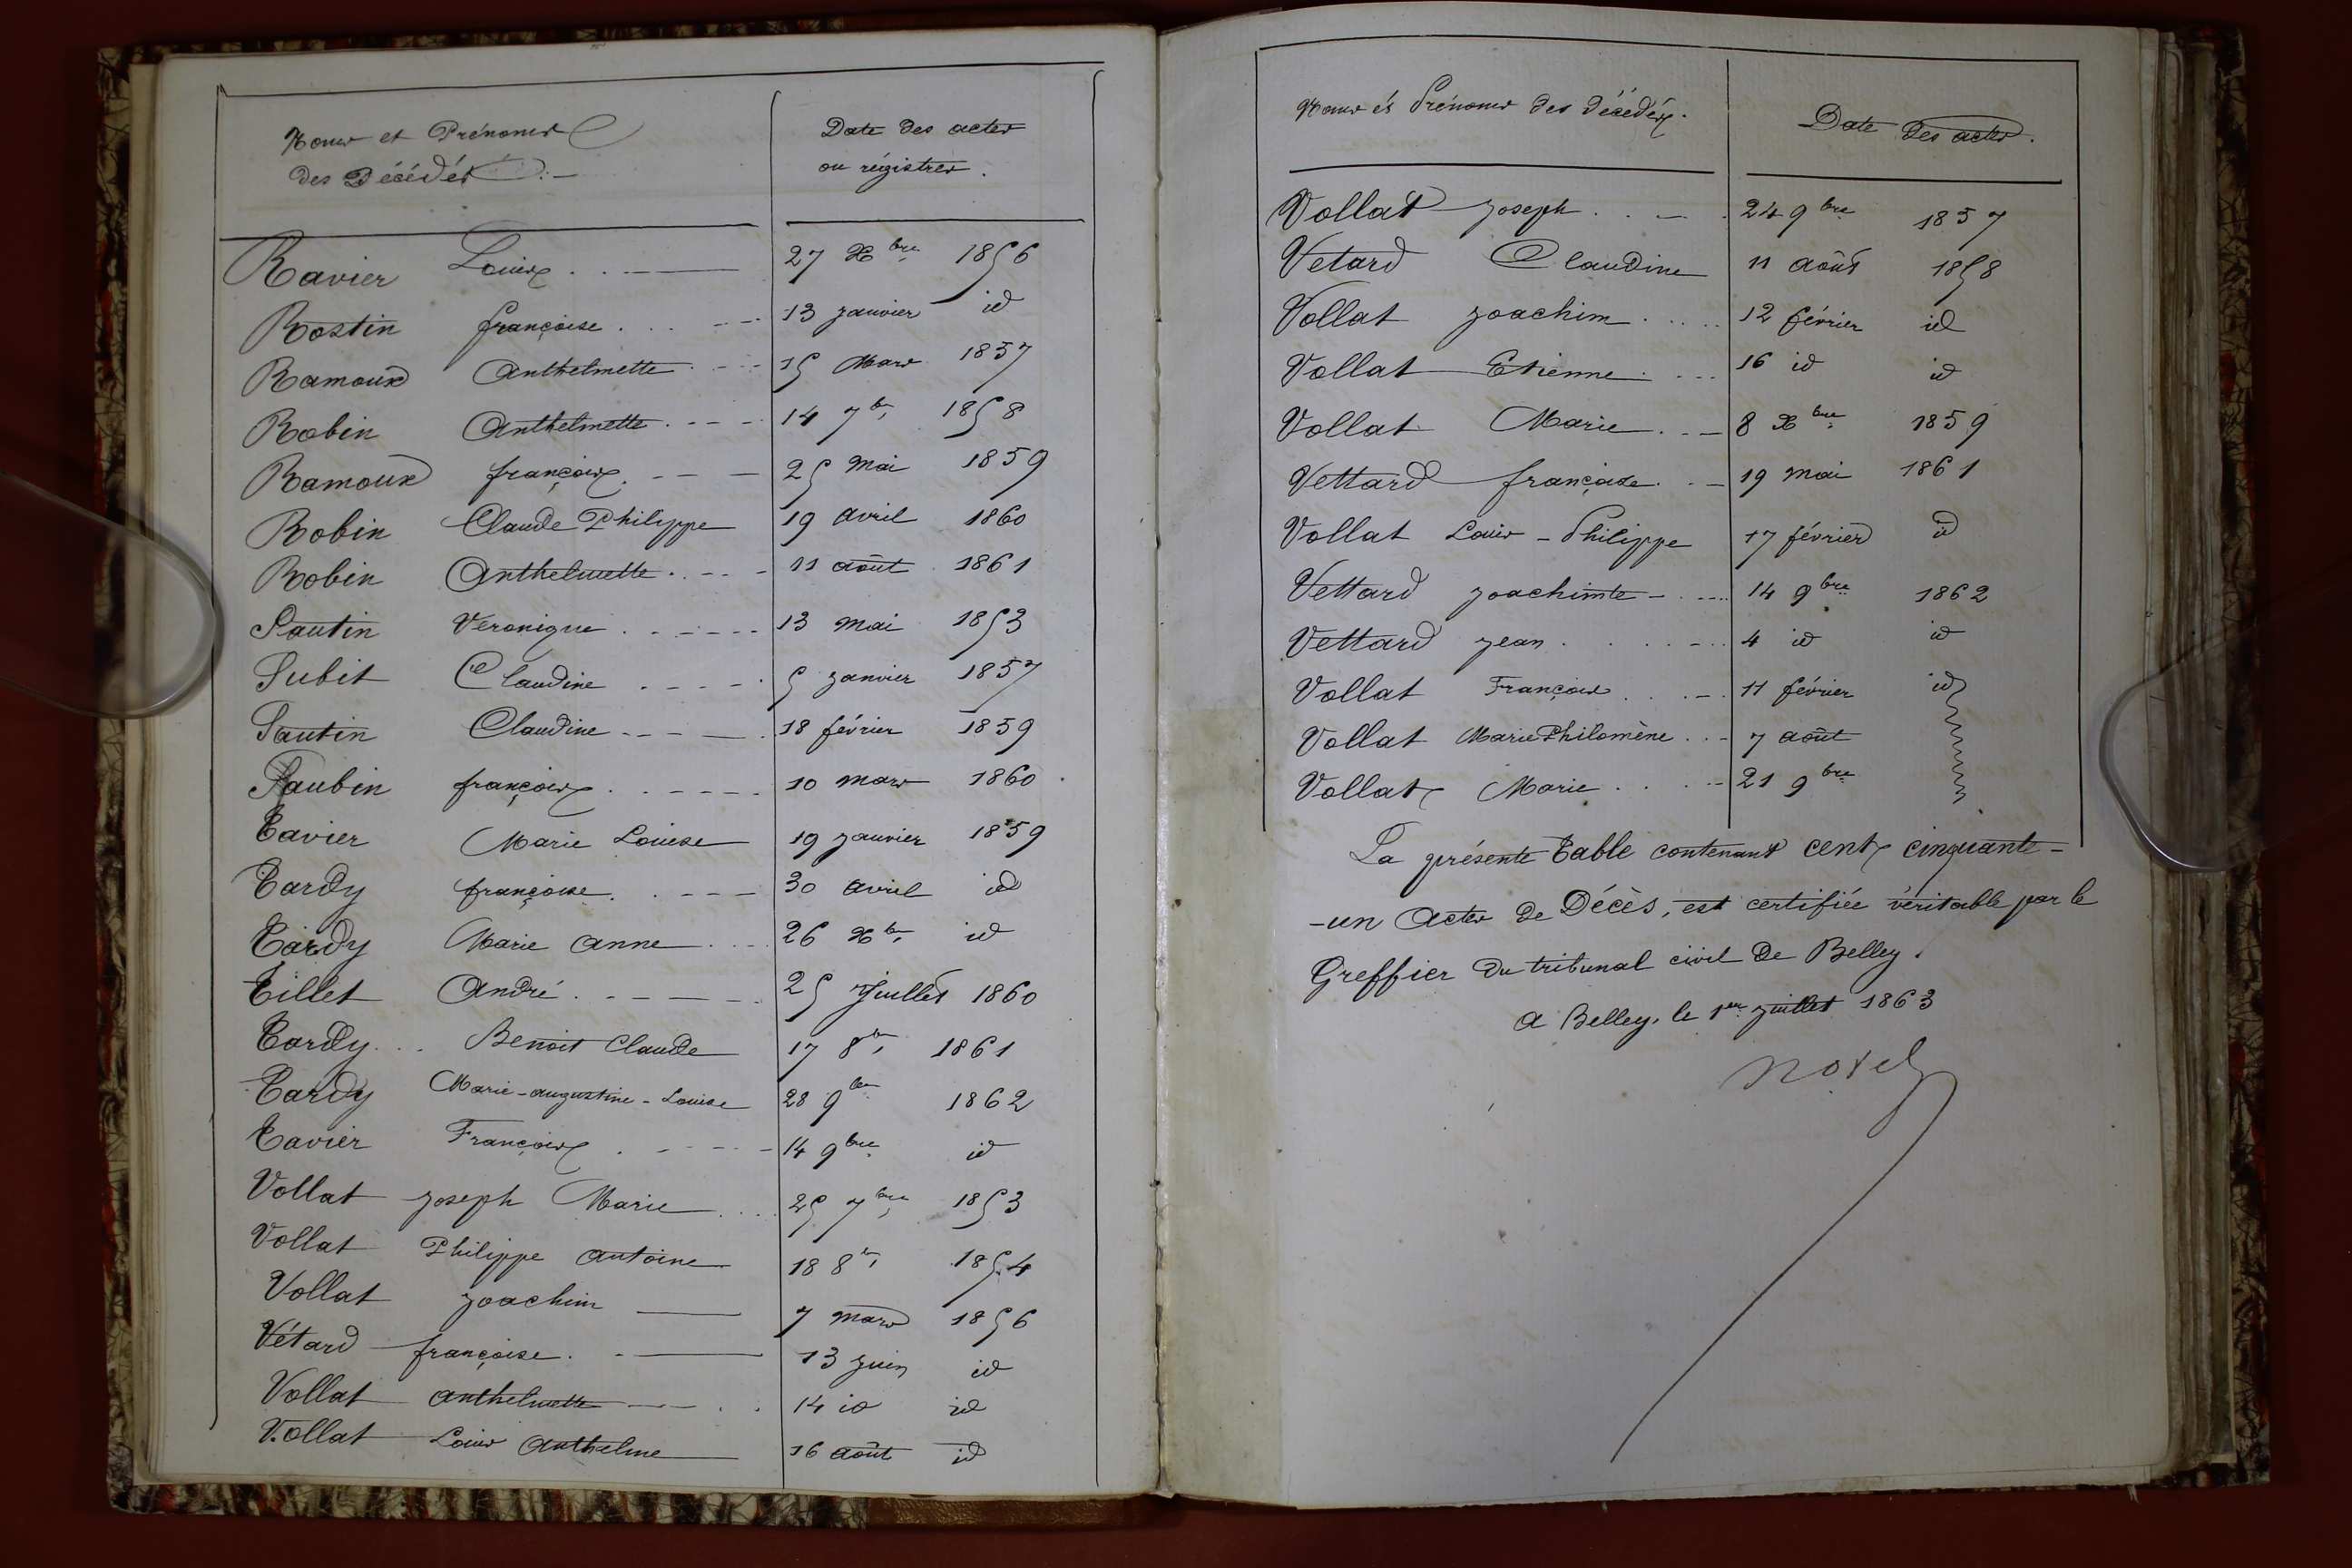 Noms et Prénoms
des Décédés
Date des actes
ou régistres.
Ravier Louis 27 Xbre 1856
Rostin françoise 13 janvier id
Ramoux Anthelmette 15 Mars 1857
Robin Anthelmette 14 7bre 1858
Ramoux françois 25 Mai 1859
Robin Claude Philippe 19 avril 1860
Robin Anthelmette 11 août 1861
Sautin Véronique 13 Mai 1853
Subit Claudine 5 janvier 1857
Sautin Claudine 18 février 1859
Saubin françois 10 mars 1860
Tavier Marie Louise 19 janvier 1859
Tardy françoise 30 avril id
Tardy Marie Anne 26 Xbre id
Tillet André 25 Juillet 1860
Tardy Benoit Claude 17 8bre 1861
Tardy Marie-augustine-Louise 28 9bre 1862
Tavier François 14 9bre id
Vollat joseph Marie 25 7bre 1853
Vollat Philippe antoine 18 8bre 1854
Vollat joachim 7 mars 1856
Vétard françoise 13 juin id
Vollat anthelmette 14 id id
Vollat Louis Anthelme 16 août id
Noms et Prénoms des Décédés.
Date des actes.
Vollat joseph 24 9bre 1857
Vetard Claudine 11 août 1858
Vollat joachim 12 février id
Vollat Etienne 16 id id
Vollat Marie 8 Xbre 1859
Vettard françoise 19 mai 1861
Vollat Louis-Philippe 17 février id
Vettard joachimte 14 9bre 1862
Vettard jean 4 id id
Vollat François 11 février id
Vollat Marie Philomène 7 août
Vollat Marie 21 9bre
La présente Table contenant cent cinquante-
-un Actes de Décès, est certifiée véritable par le
Greffier du tribunal civil de Belley.
A Belley, le 1er juillet 1863